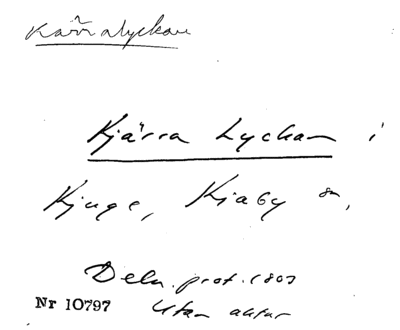 Kärralyckan
Kjärra Lyckan i
Kjuge, Kiaby sn,
Deln. prot. 1803
Nr 10797 Utan aktnr